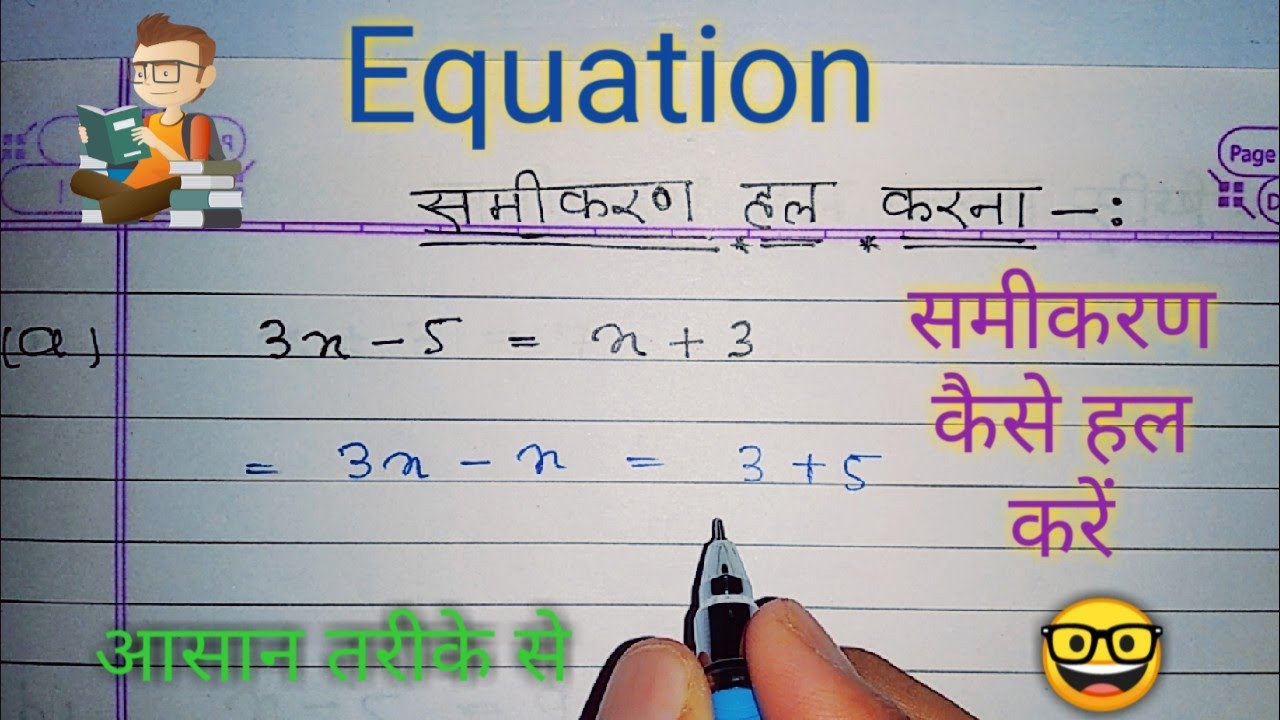 Equation
Page
समीकरण हल करना -:
(a) 3x - 5 = x + 3
= 3x - x = 3 + 5
समीकरण
कैसे हल
करें
आसान तरीके से